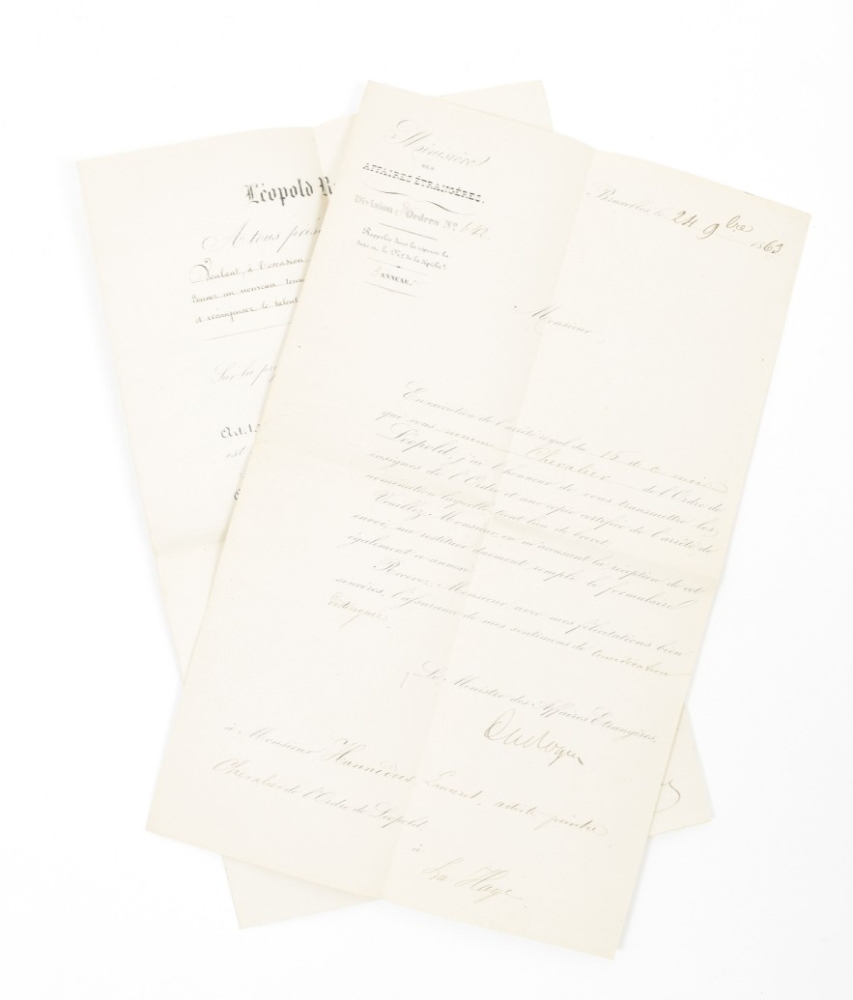 Léopold R
A tous prés
Voulant, à l'occasion
donner un nouveau témoi
et récompenser le talent
Sur la pr
Art. 1.
est
Ministère
DES
AFFAIRES ÉTRANGÈRES.
Division: Ordres N° 642
Rappeler dans la réponse la
date et le N° de la dépêche
ANNEXE
Bruxelles, le 24 9bre 1863
Monsieur,
En exécution de l'arrêté royal du 15 de ce mois
que vous nomme Chevalier de l'Ordre de
Léopold, j'ai l'honneur de vous transmettre les
insignes de l'Ordre et une copie certifiée de l'arrêté de
nomination laquelle tient lieu de brevet.
Veuillez, Monsieur, en m'accusant la réception de cet
envoi, me restituer dûment rempli le formulaire
également ci-annexé.
Recevez, Monsieur, avec mes félicitations bien
sincères, l'assurance de mes sentiments de considération
distinguée.
Le Ministre des Affaires Etrangères,
à Monsieur artiste peintre
Chevalier de l'Ordre de Léopold,
à
La Haye.